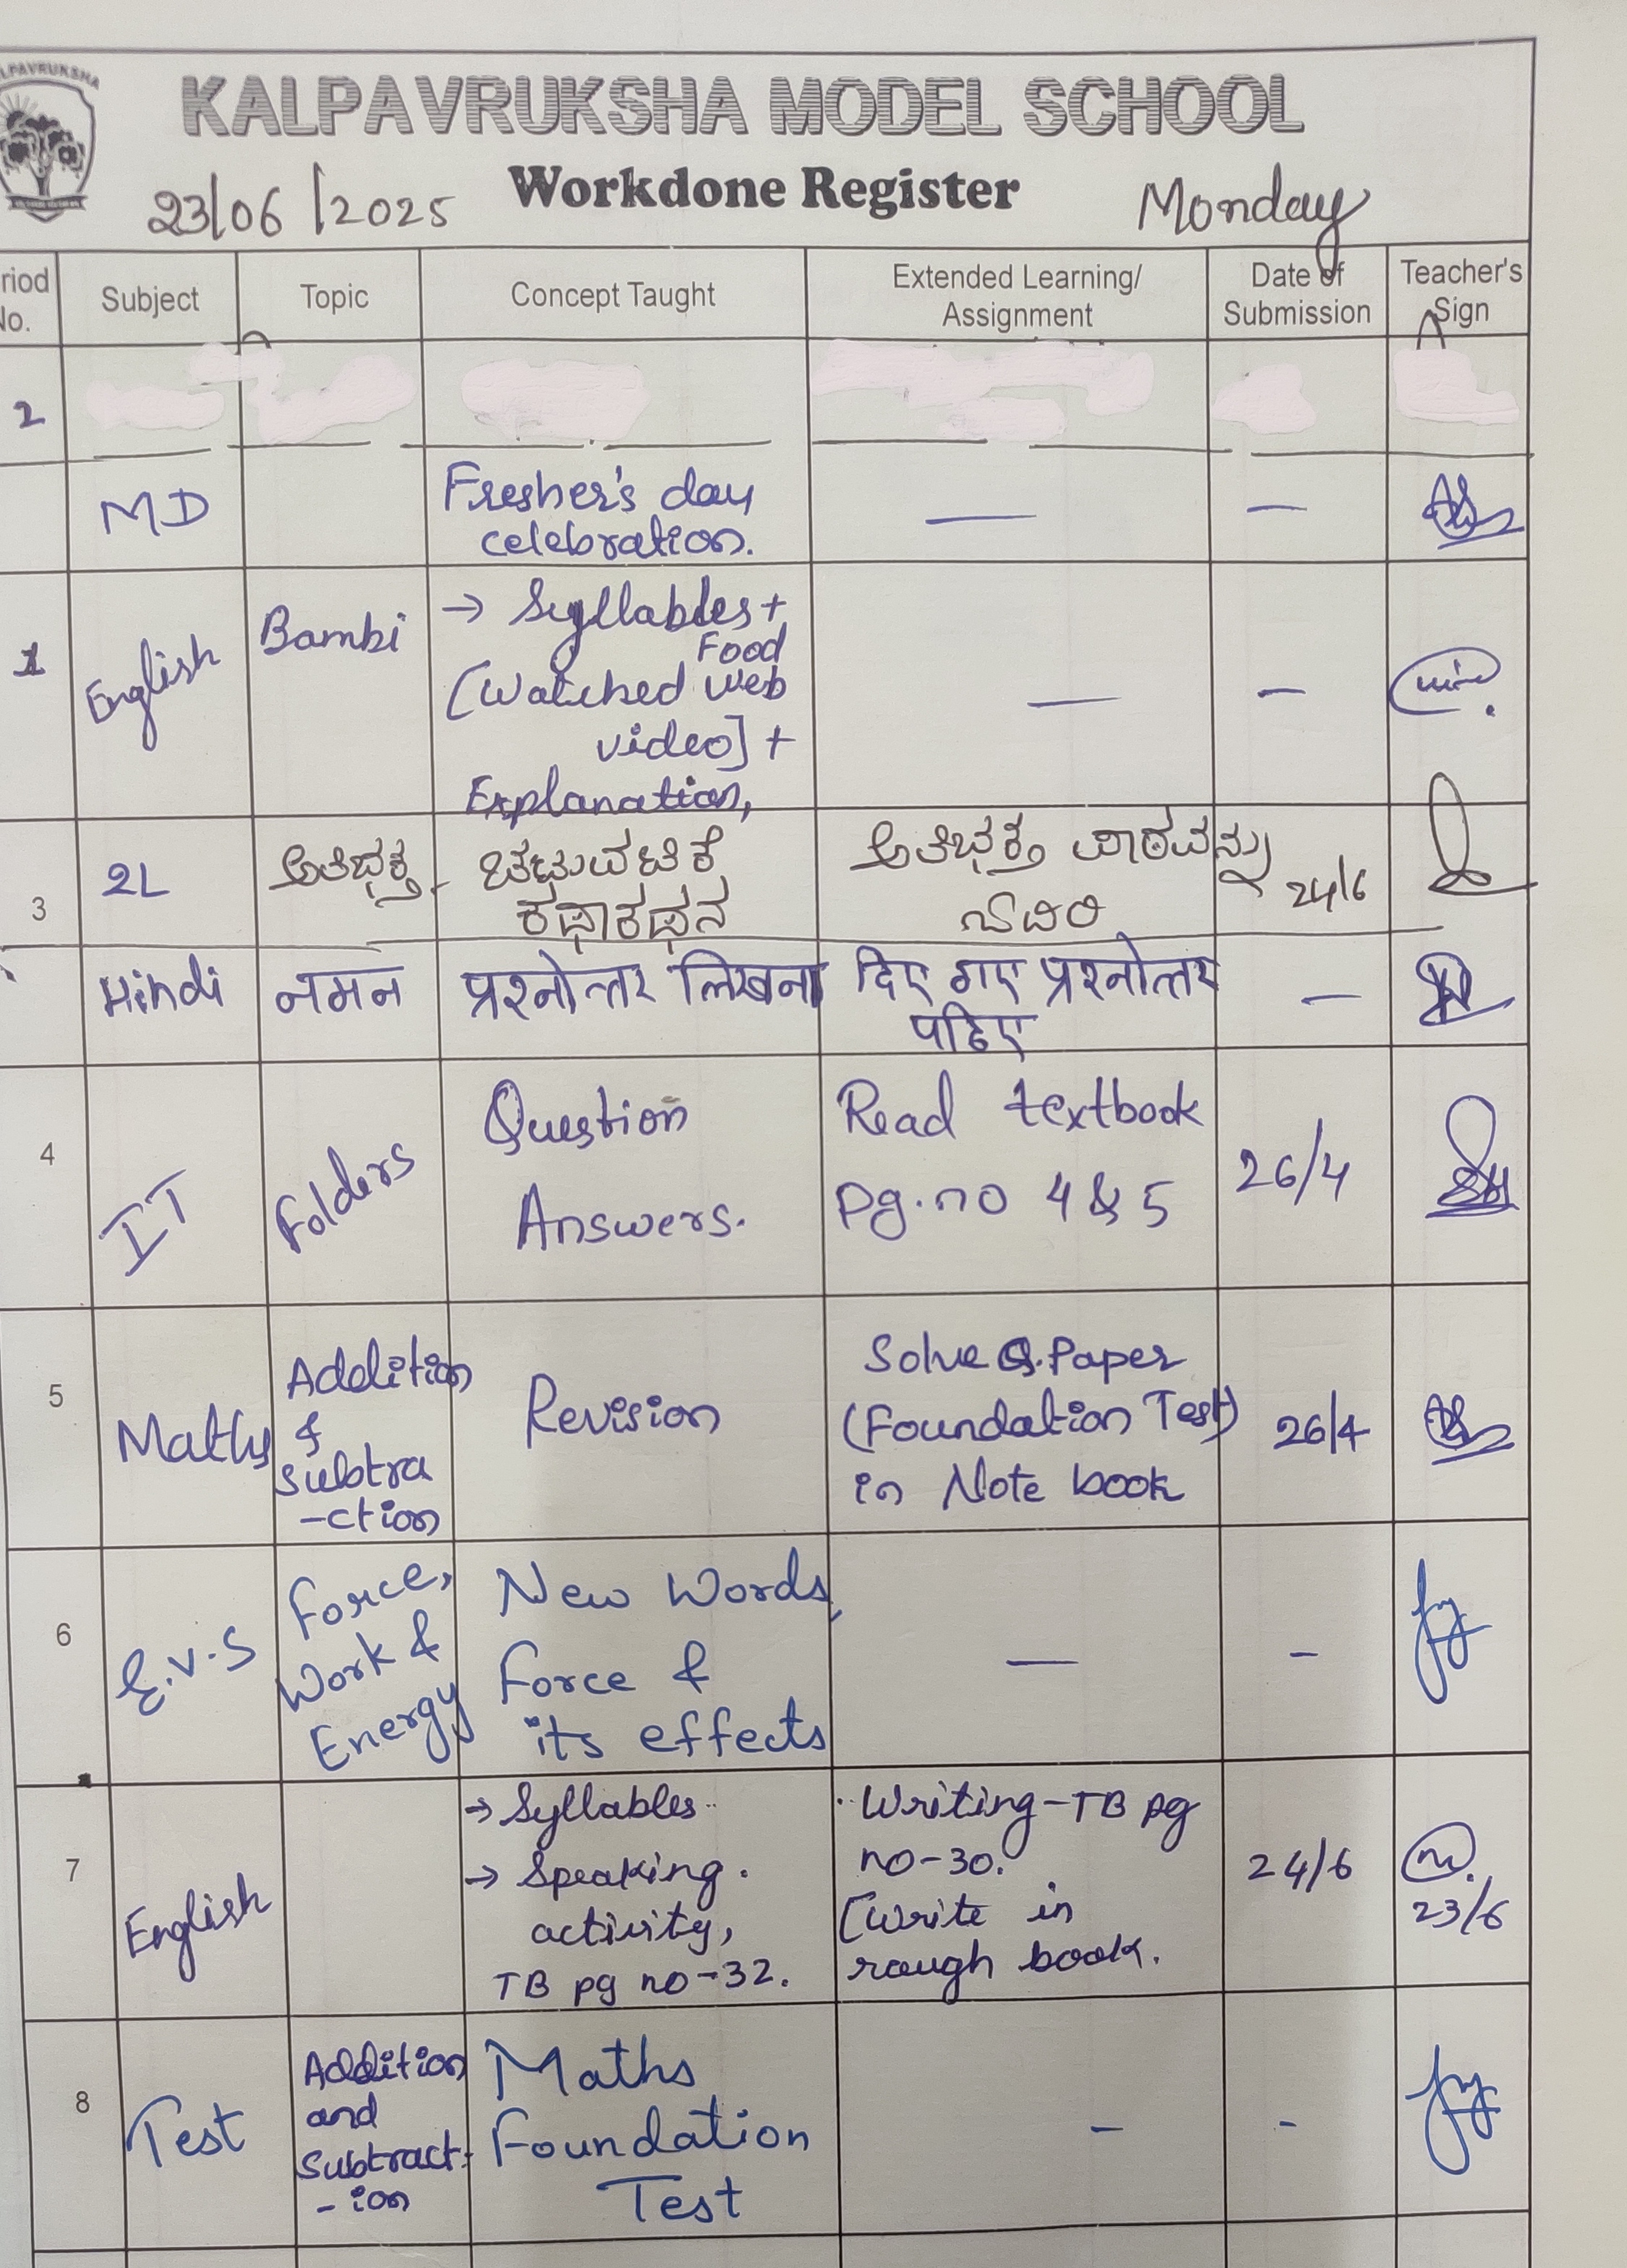 LPAVRUKSHA
KALPAVRUKSHA MODEL SCHOOL
Workdone Register
23/06/2025
Monday
riod No.
Subject
Topic
Concept Taught
Extended Learning/
Assignment
Date of
Submission
Teacher's
Sign
2
MD
Fresher's day
celebration.
—
—
1
English
Bambi
→ Syllables +
Food
[Watched web
video] +
Explanation,
—
—
3
2L
ಅತಿಭಕ್ತ
ಚಟುವಟಿಕೆ
ಕಥಾಕಥನ
ಅತಿಭಕ್ತ ಪಾಠವನ್ನು
ಓದಿರಿ
24/6
Hindi
नमन
प्रश्नोत्तर लिखना
दिए गए प्रश्नोत्तर
पढिए
—
4
IT
Folders
Question
Answers.
Read textbook
pg.no 4 & 5
26/4
5
Maths
Addition
&
subtra
-ction
Revision
Solve Q.Paper
(Foundation Test)
in Note book
26/4
6
E.V.S
Force,
Work &
Energy
New Words,
Force &
its effects
—
–
7
English
→ Syllables
→ Speaking.
activity,
TB pg no-32.
Writing-TB pg
no-30.
[Write in
rough book.
24/6
23/6
8
Test
Addition
and
Subtract-
-ion
Maths
Foundation
Test
–
–